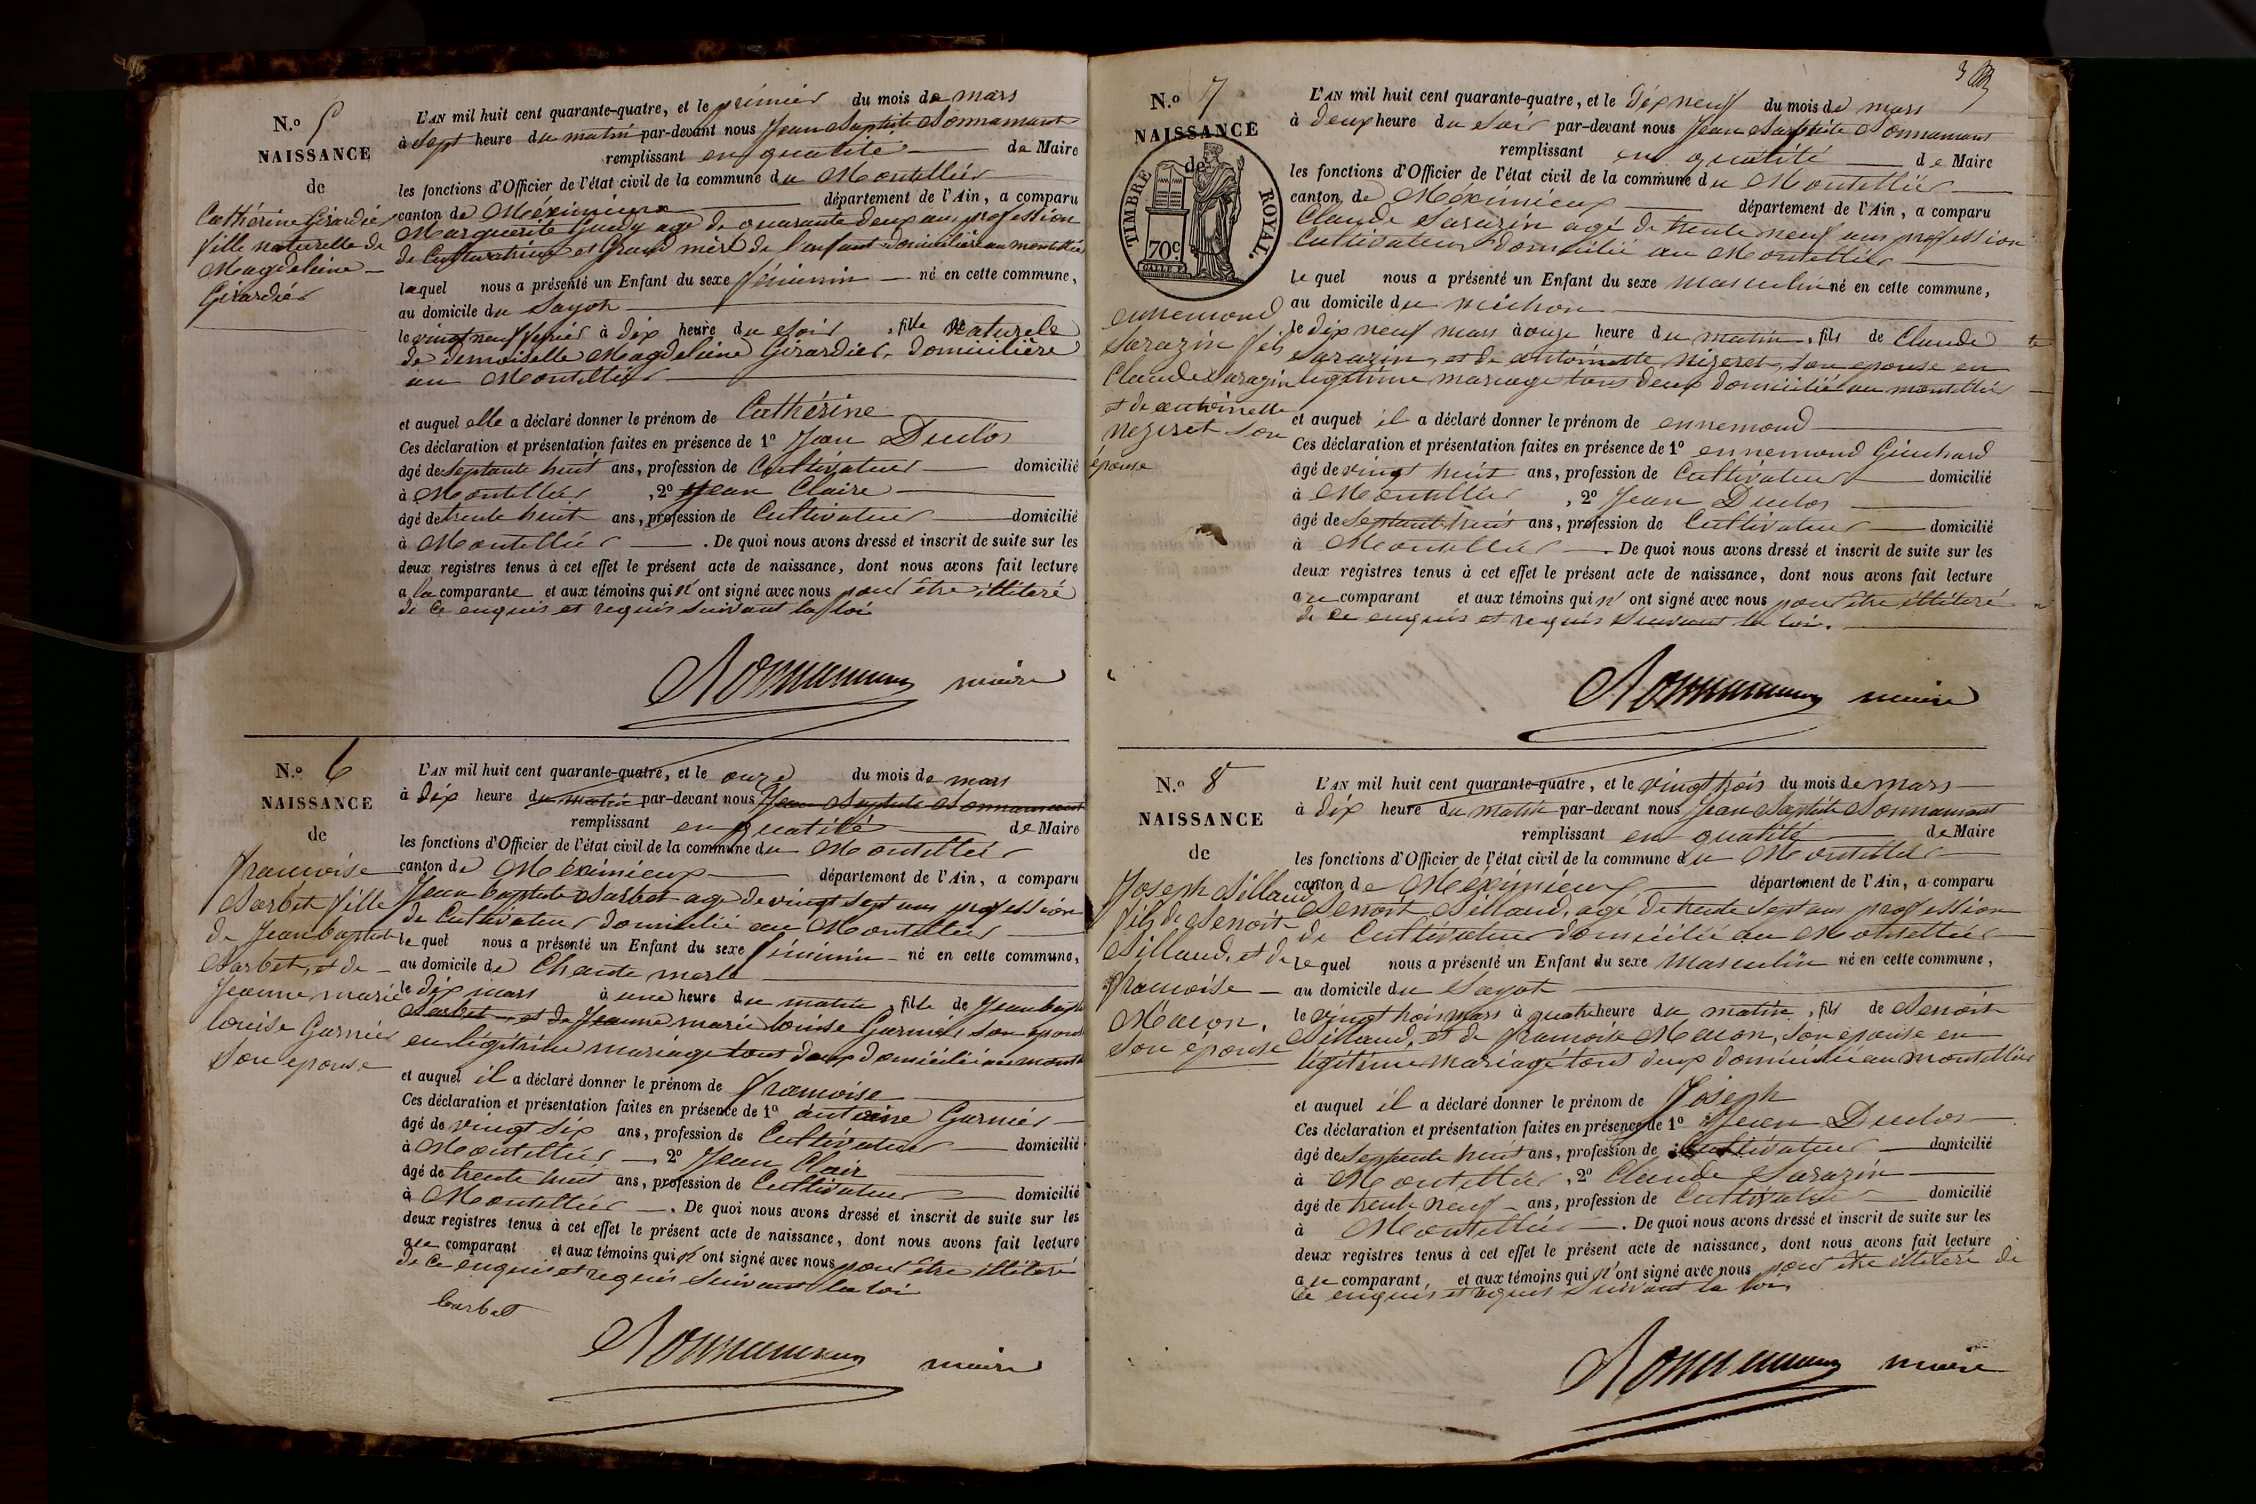 N.º 5
NAISSANCE
de
Cathérine Girardié
fille naturelle de
Magdeleine
Girardiér
L'AN mil huit cent quarante-quatre, et le prémier du mois de mars
à sept heure du matin par-devant nous Jean Baptiste Bonnamant
remplissant en qualité de Maire
les fonctions d'Officier de l'état civil de la commune du Montelliér
canton de Méximieux département de l'Ain, a comparu
Marguerite agé de quarante deux ans profession
de Cultivatrice et Grand mère de l'enfant domicilière au montelliér
laquel nous a présenté un Enfant du sexe féminin né en cette commune,
au domicile du Sayot
le vingt neuf fevrier à dix heure du soir, fille Naturele
de demoiselle Magdeleine Girardiér, domicilière
au Montelliér
et auquel elle a déclaré donner le prénom de Cathérine
Ces déclaration et présentation faites en présence de 1º Jean Duclos
âgé de septante huit ans, profession de Cultivateur domicilié
à Montelliér, 2º Jean Claire
âgé de trente huit ans, profession de Cultivateur domicilié
à Montelliér. De quoi nous avons dressé et inscrit de suite sur les
deux registres tenus à cet effet le présent acte de naissance, dont nous avons fait lecture
a la comparante et aux témoins qui n' ont signé avec nous pour être illiteré
de ce enquis et requis suivant la loi
Bonnamant maire
N.º 6
NAISSANCE
de
francoise
Barbet fille
de Jean baptiste
Barbet, et de
Jeanne marie
louise Garniér
Son epouse
L'AN mil huit cent quarante-quatre, et le onze du mois de mars
à dix heure du matin par-devant nous Jean Baptiste Bonnamant
remplissant en qualité de Maire
les fonctions d'Officier de l'état civil de la commune du Montelliér
canton de Méximieux département de l'Ain, a comparu
Jean baptiste Barbet age de vingt sept ans profession
de Cultivateur domicilié au Montelliér
le quel nous a présenté un Enfant du sexe féminin né en cette commune,
au domicile de Chante merle
le dix mars à une heure du matin, fille de Jean baptiste
Barbet, et de Jeanne marie louise Garniér son epouse
en légitime mariage tout deux domicilié au
et auquel il a déclaré donner le prénom de francoise
Ces déclaration et présentation faites en présence de 1º antoine Garniér
âgé de vingt six ans, profession de Cultivateur domicilié
à Montelliér, 2º Jean Clair
âgé de trente huit ans, profession de Cultivateur domicilié
à Montelliér. De quoi nous avons dressé et inscrit de suite sur les
deux registres tenus à cet effet le présent acte de naissance, dont nous avons fait lecture
au comparant et aux témoins qui n' ont signé avec nous pour être illiteré
de ce enquis et requis suivant la loi
barbet
Bonnamant maire
3
N.º 7
NAISSANCE
de
TIMBRE ROYAL.
70 c.
ennemond
Sarazin fils
Claude Sarazin
et de antoinette
Nezeret Son
épouse
L'AN mil huit cent quarante-quatre, et le Dix neuf du mois de mars
à deux heure du soir par-devant nous Jean Baptiste Bonnamant
remplissant en qualité de Maire
les fonctions d'Officier de l'état civil de la commune du Montelliér
canton de Méximieux département de l'Ain, a comparu
Claude Sarazin agé de trente neuf ans profession
Cultivateur domicilié au Montelliér
le quel nous a présenté un Enfant du sexe masculin né en cette commune,
au domicile du michon
le dix neuf mars à onze heure du matin, fils de Claude
Sarazin, et de antoinette Nizeret, son epouse en
legitime mariage tous deux domicilié au montelliér
et auquel il a déclaré donner le prénom de ennemond
Ces déclaration et présentation faites en présence de 1º ennemond Guichard
âgé de vingt huit ans, profession de Cultivateur domicilié
à Montelliér, 2º Jean Duclos
âgé de septante huit ans, profession de Cultivateur domicilié
à Montelliér. De quoi nous avons dressé et inscrit de suite sur les
deux registres tenus à cet effet le présent acte de naissance, dont nous avons fait lecture
au comparant et aux témoins qui n' ont signé avec nous pour être illiteré
de ce enquis et requis suivant la loi.
Bonnamant maire
N.º 8
NAISSANCE
de
Joseph Billaud
fils de Benoit
Billaud, et de
francoise
Macon,
Son epouse
L'AN mil huit cent quarante-quatre, et le vingt trois du mois de mars
à dix heure du matin par-devant nous Jean Baptiste Bonnamant
remplissant en qualité de Maire
les fonctions d'Officier de l'état civil de la commune du Montelliér
canton de Méximieux département de l'Ain, a comparu
Benoit Billaud, agé de trente sept ans profession
de Cultivateur domicilié au Montelliér
le quel nous a présenté un Enfant du sexe masculin né en cette commune,
au domicile du Sayot
le vingt trois mars à quatre heure du matin, fils de Benoit
Billaud, et de francoise Macon, son epouse en
légitime mariage tous deux domicilié au montelliér
et auquel il a déclaré donner le prénom de Joseph
Ces déclaration et présentation faites en présence de 1º Jean Duclos
âgé de septante huit ans, profession de Cultivateur domicilié
à Montelliér, 2º Claude Sarazin
âgé de trente neuf ans, profession de Cultivateur domicilié
à Montelliér. De quoi nous avons dressé et inscrit de suite sur les
deux registres tenus à cet effet le présent acte de naissance, dont nous avons fait lecture
au comparant, et aux témoins qui n' ont signé avec nous pour être illiteré de
ce enquis et requis suivant la loi
Bonnamant maire